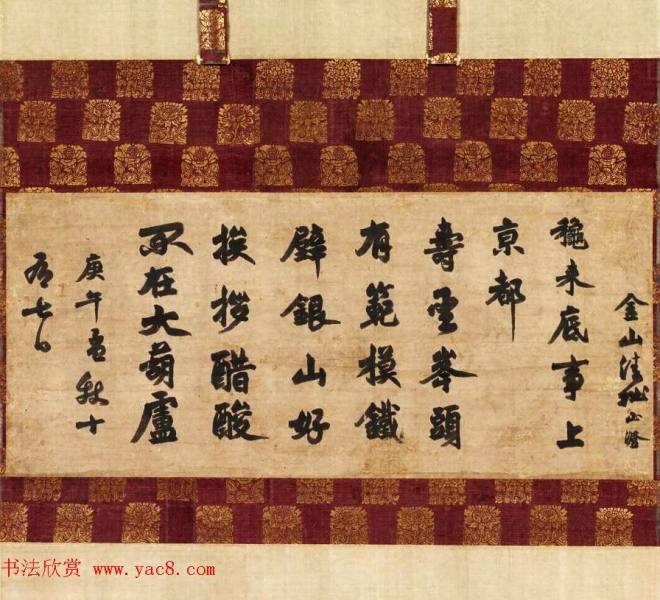 金山清拙正澄
穐来底事上
京都
壽峯頭
有範模鐵
壁銀山好
挨拶醋酸
不在大葫蘆
庚午孟秋十
有七日
书法欣赏 www.yac8.com